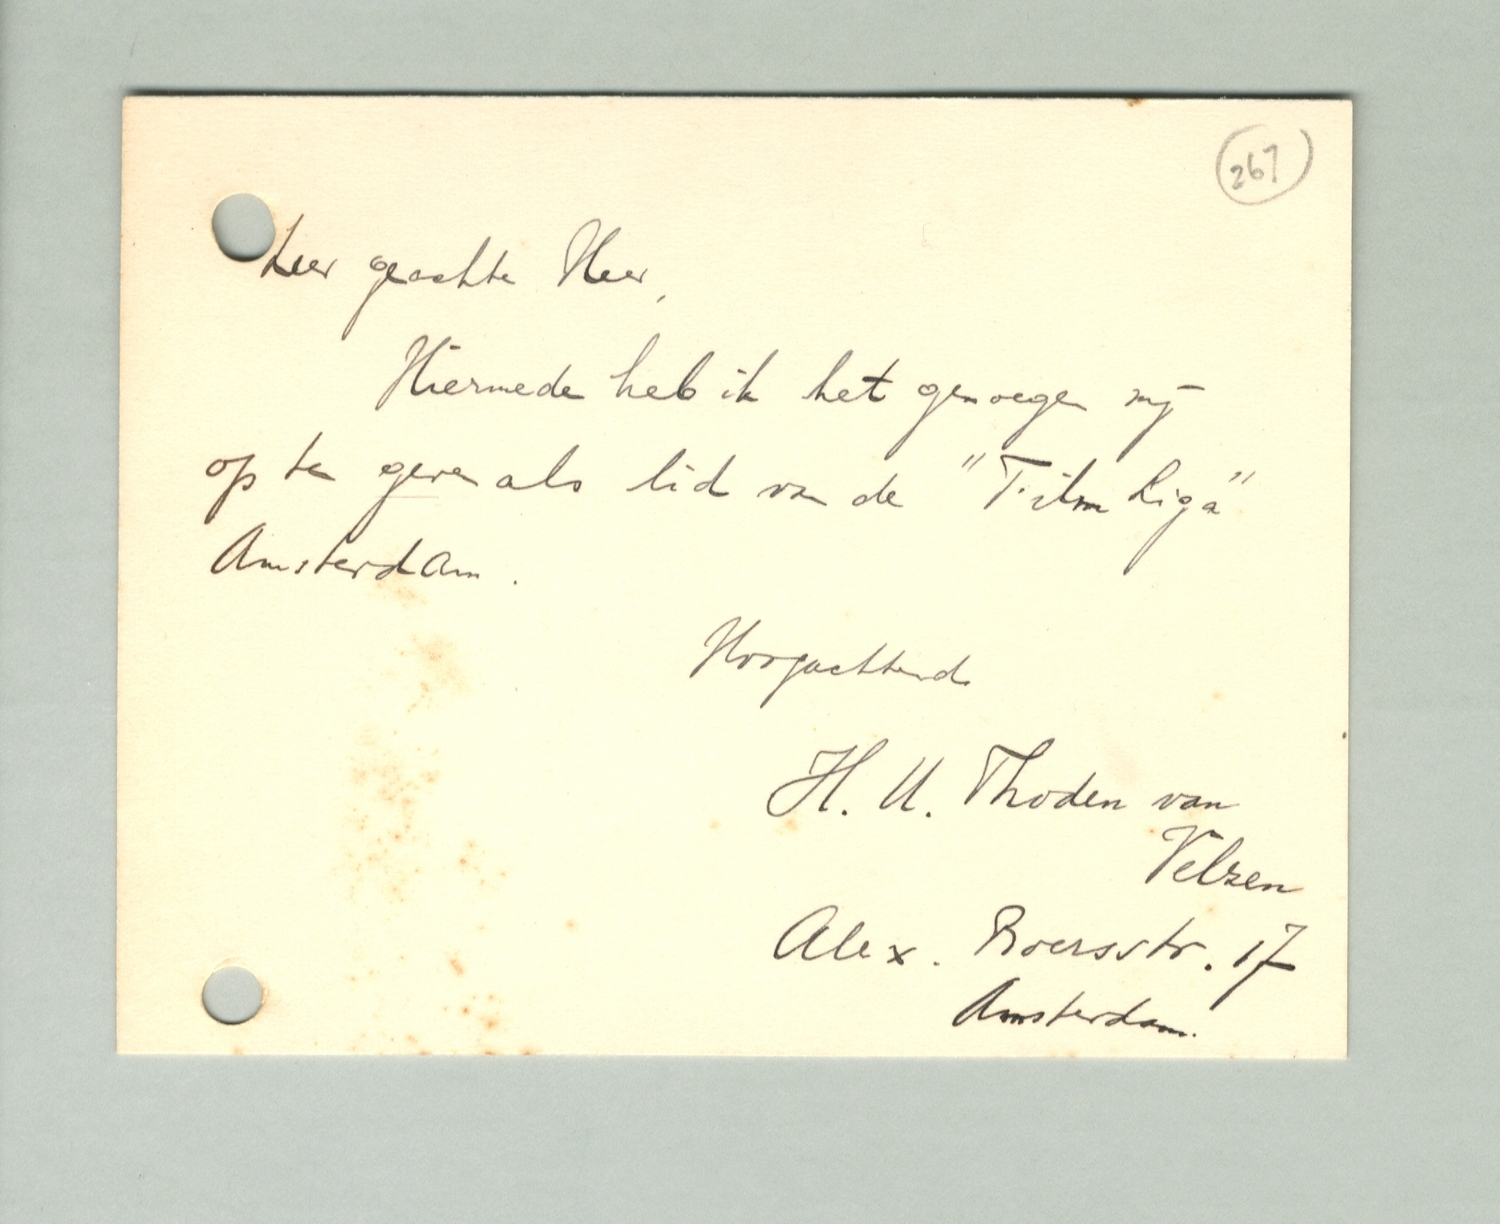 267
Zeer geachte Heer,
Hiermede heb ik het genoegen mij
op te geven als lid van de "Film Liga"
Amsterdam.
Hoogachtend
H. U. Thoden van
Velzen
Alex. Boersstr. 17
Amsterdam.